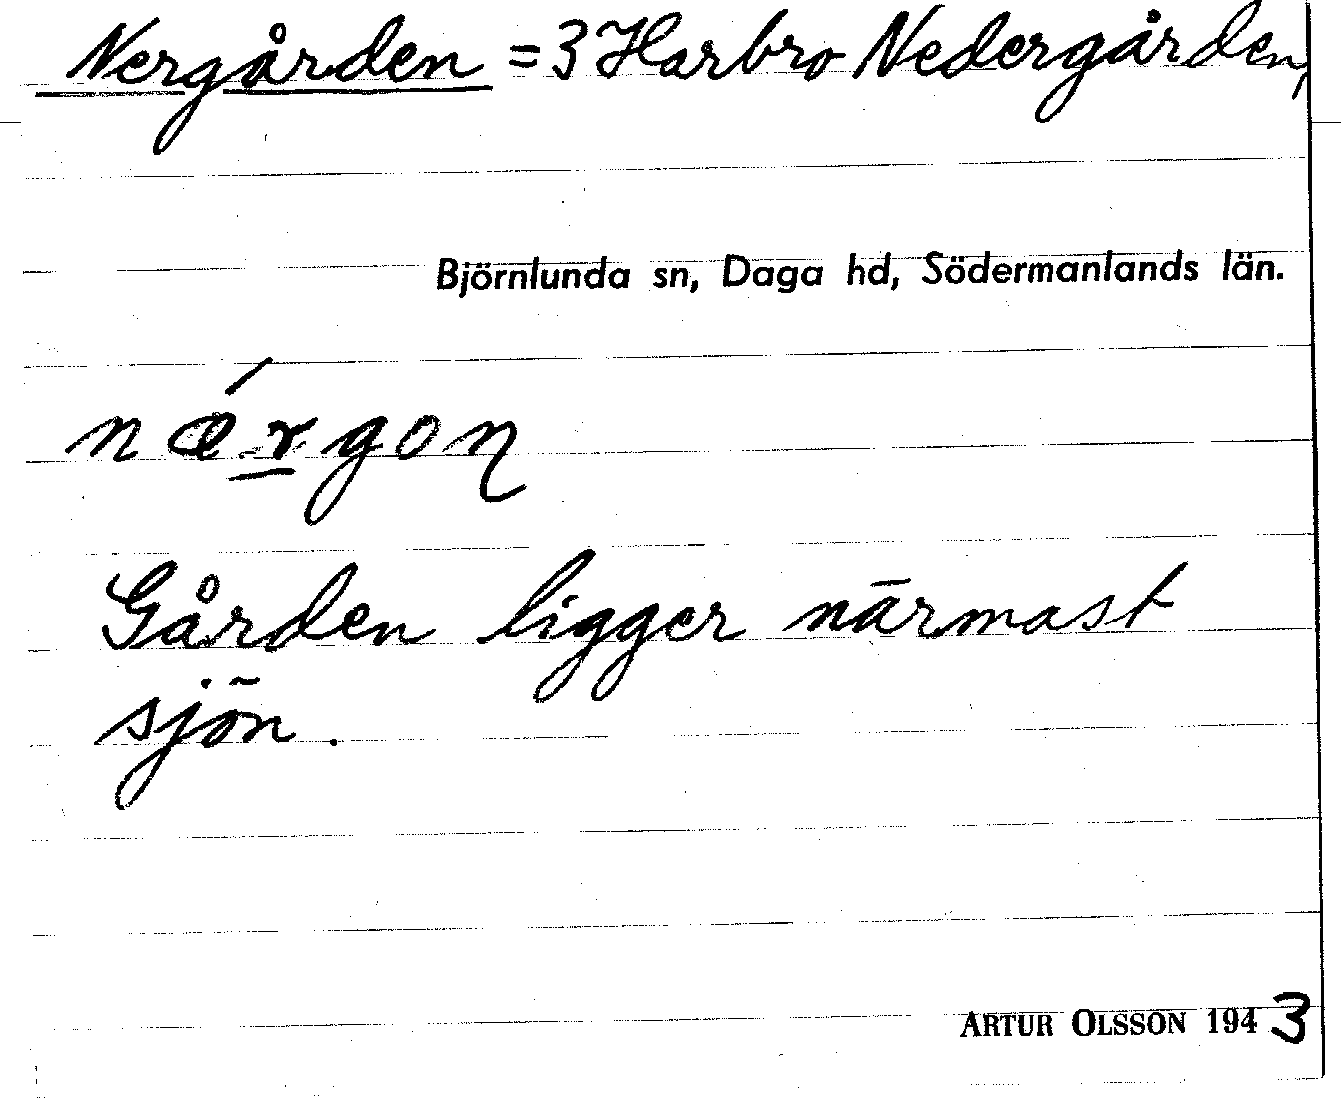 Nergården = 3 Harbro Nedergården,
Björnlunda sn, Daga hd, Södermanlands län.
nǽrgoη
Gården ligger närmast
sjön.
ARTUR OLSSON 1943